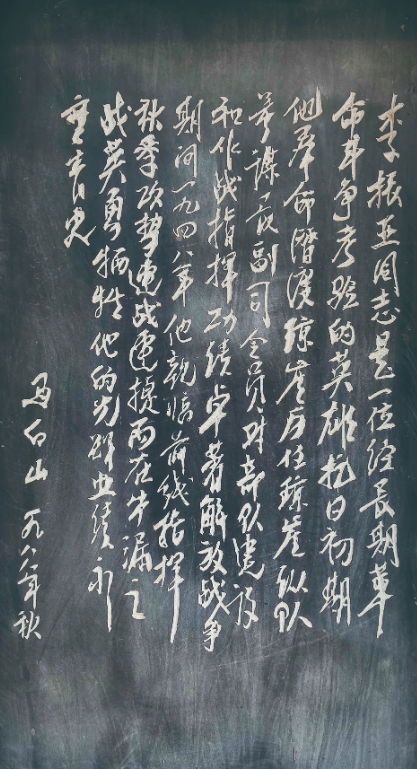 李振亚同志是一位经长期革
命斗争考验的英雄抗日初期
他奉命潜渡琼崖历任琼崖纵队
参谋长副司令员对部队建设
和作战指挥功绩卓著解放战争
期间一九四八年他亲临前线指挥
秋季攻势连战连捷而在牛漏之
战英勇牺牲他的光辉业绩永
垂青史
马白山 一九八八年秋